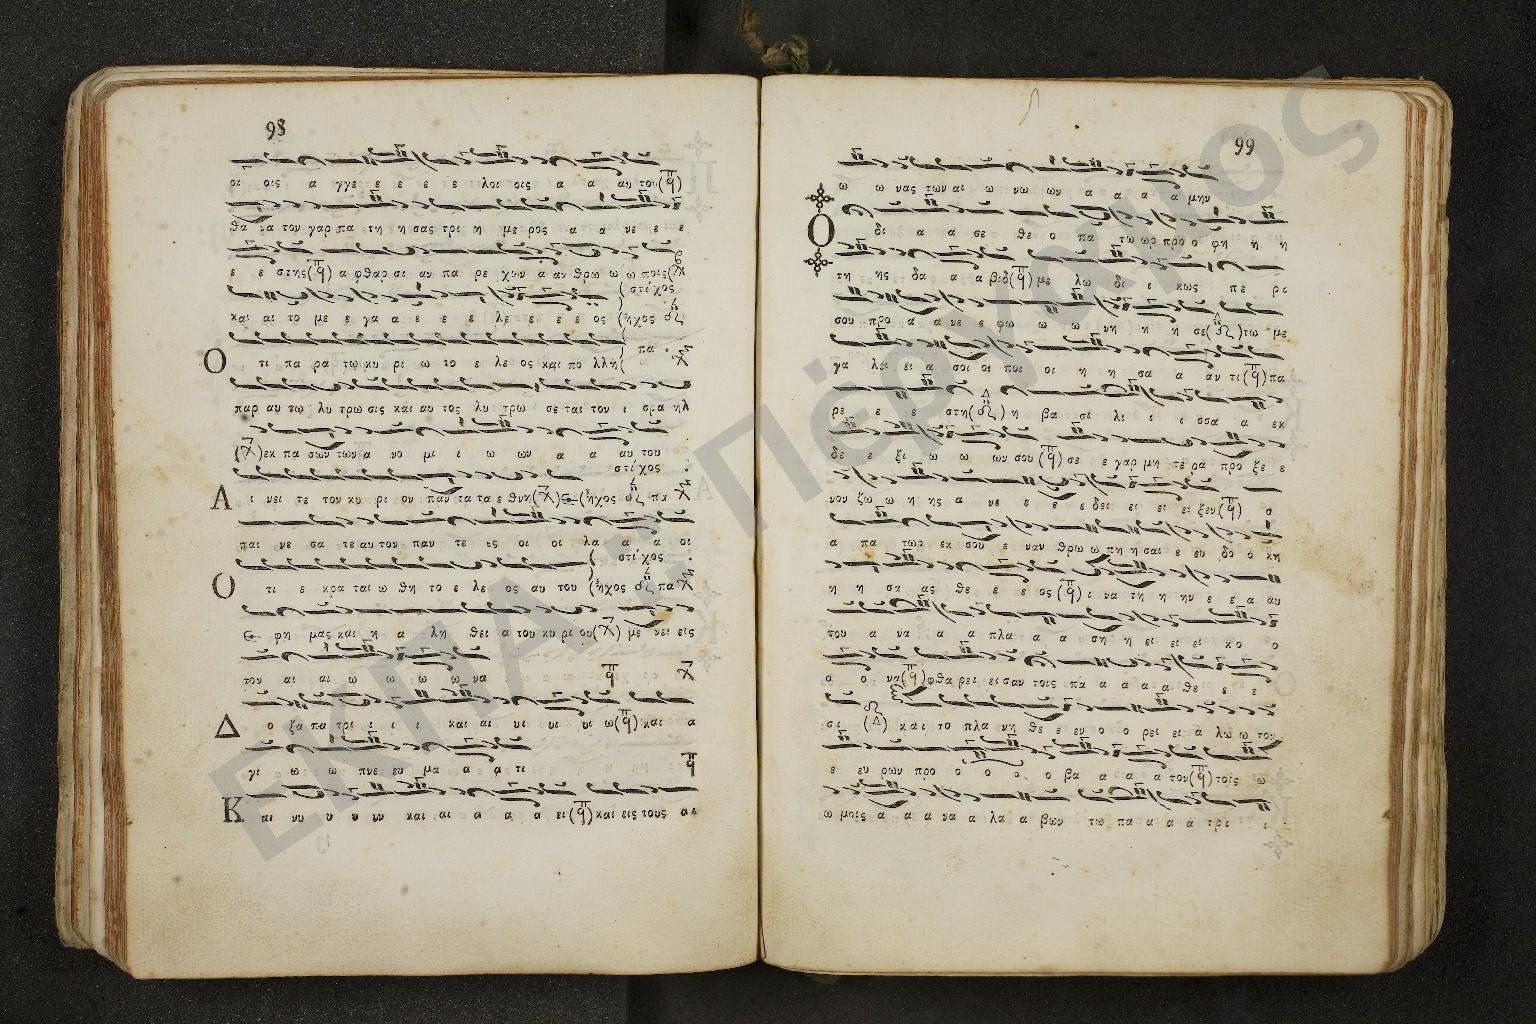 98
οι οις α γγε ε ε ε ε λοι οις α α αυ του
θα να τον γαρ πα τη η σας τρι η με ρος α α νε ε ε
ε ε στης α φθαρ σι αν πα ρε χων α αν θρω ω ω ποις
στίχος
και αι το με ε γα α ε ε ε λε ε ε ε ε ος ἦχος
πα
Ο τι πα ρα τω κυ ρι ω το ε λε ος και πο λλη
παρ αυ τω λυ τρω σις και αυ τος λυ τρω σε ται τον ι σρα ηλ
εκ πα σων των α νο μι ι ω ων α α αυ του
στίχος
Α ι νει τε τον κυ ρι ον παν τα τα ε θνη ἦχος πα
παι νε σα τε αυ τον παν τε ες οι οι λα α α οι
στίχος
Ο τι ε κρα ται ω θη το ε λε ος αυ του ἦχος πα
ε φη μας και η α λη θει α του κυ ρι ου με νει εις
τον αι αι ω ω ω ω να
Δ ο ξα πα τρι ι ι ι και αι υι υι υι υι ω και α
γι ω ω ω πνε ευ μα α α α τι
Κ αι νυ υ υ υν και αι α α α ει και εις τους αι
99
ω ω νας των αι ω νω ων α α α α μην
Ο δι α α σε θε ο πα τω ωρ προ ο φη η η
τη ης δα α α βιδ με λω δι ι κως πε ρι
σου προ α α νε ε φω ω ω νη η η σε τω με
γα λει ει α σοι οι ποι οι η η σα α αν τι πα
ρε ε ε στη η βα σι λι ι ι σσα α εκ
δε ε ξι ω ω ων σου σε ε γαρ μη τε ρα προ ξε ε
νον ζω ω η ης α νε ε ε ε δει ει ει ει ξεν ο
α πα τωρ εκ σου ε ναν θρω ω πη η σαι ε ευ δο ο κη
η η σα ας θε ε ε ος ι να τη η ην ε ε α αυ
του α να α α πλα α α ση η ει ει ει κο ο
ο ο να φθα ρει ει σαν τοις πα α α α α θε ε ε
σι και το πλα νη θε ε εν ο ο ρει ει α λω ω τον
ε ευ ρων προ ο ο ο ο βα α α α α τον τοις ω
ω μοις α α α να α λα α βων τω πα α α α τρι ι
ΕΠΑΝ Πέργαμος